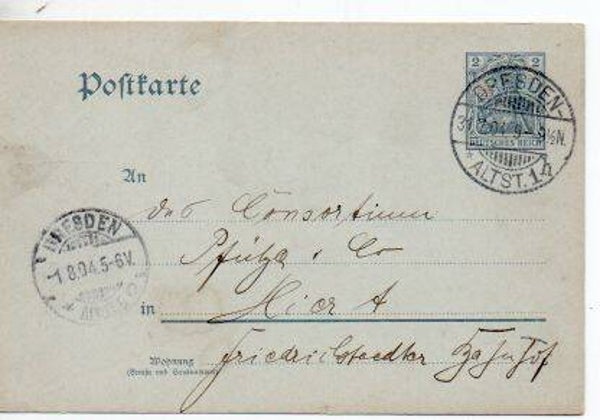 Postkarte
2 2
DEUTSCHES REICH
DRESDEN-
31.7.04 9-
½N.
* ALTST. 14
An
das Consortium
Pfütze & Co
DRESDEN
-1.8.04.5-6V.
in
Hier A
Wohnung
(Straße und Hausnummer)
Friedrichstaedter Bahnhof